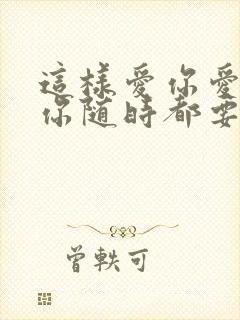 這樣愛你愛
你随時都要
曾軼可